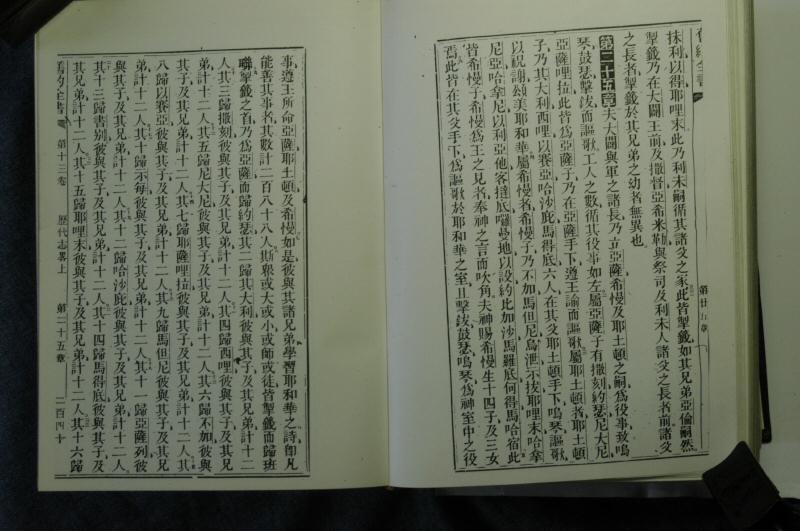 舊約全書
抹利以得耶哩末此乃利未嗣循其諸父之家此皆掣籤如其兄弟亞倫嗣然
掣籤乃在大闢王前及撒督亞希米勒與祭司及利未人諸父之長者前諸父
之長者掣籤於其兄弟之幼者無異也
第二十五章夫大闢與軍之諸長乃立亞薩希慢及耶土頓之嗣爲役事致鳴
琴鼓瑟擊鈸而謳歌工人之數循其役事如左屬亞薩子有撒刻約瑟尼大尼
亞薩哩拉此皆爲亞薩子乃在亞薩手下遵王諭而謳歌屬耶土頓者耶土頓
子乃其大利西哩以賽亞哈沙庇馬得底六人在其父耶土頓手下鳴琴謳歌
以祝謝頌美耶和華屬希慢者希慢子乃不加馬但尼烏泄示拔耶哩末哈拿
尼亞哈拿尼以利亞他客撻底囉曼地以設約比加沙馬羅底何得馬哈宿此
皆希慢子希慢爲王之見者奉神之言而吹角夫神賜希慢生十四子及三女
焉此皆在其父手下爲謳歌於耶和華之室且擊鈸鼓瑟鳴琴爲神室中之役
第廿五章
事遵王所命亞薩耶土頓及希慢如是彼與其諸兄弟學習耶和華之詩卽凡
能善其事者其數計二百八十八人斯衆或大或小或師或徒皆掣籤而歸班
聯掣籤之首乃爲亞薩而歸約瑟其二歸其大利彼與其子及其兄弟計十二
人其三歸撒刻彼與其子及其兄弟計十二人其四歸西哩彼與其子及其兄
弟計十二人其五歸尼大尼彼與其子及其兄弟計十二人其六歸不加彼與
其子及其兄弟計十二人其七歸耶薩哩拉彼與其子及其兄弟計十二人其
八歸以賽亞彼與其子及其兄弟計十二人其九歸馬但尼彼與其子及其兄
弟計十二人其十歸示每彼與其子及其兄弟計十二人其十一歸亞薩列彼
與其子及其兄弟計十二人其十二歸哈沙庇彼與其子及其兄弟計十二人
其十三歸書別彼與其子及其兄弟計十二人其十四歸馬得底彼與其子及
其兄弟計十二人其十五歸耶哩末彼與其子及其兄弟計十二人其十六歸
舊約全書 第十三卷 歷代志畧上 第二十五章 二百四十